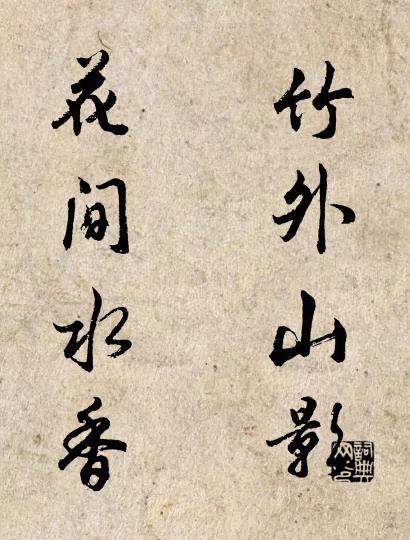 竹外山影
花间水香
詞典网